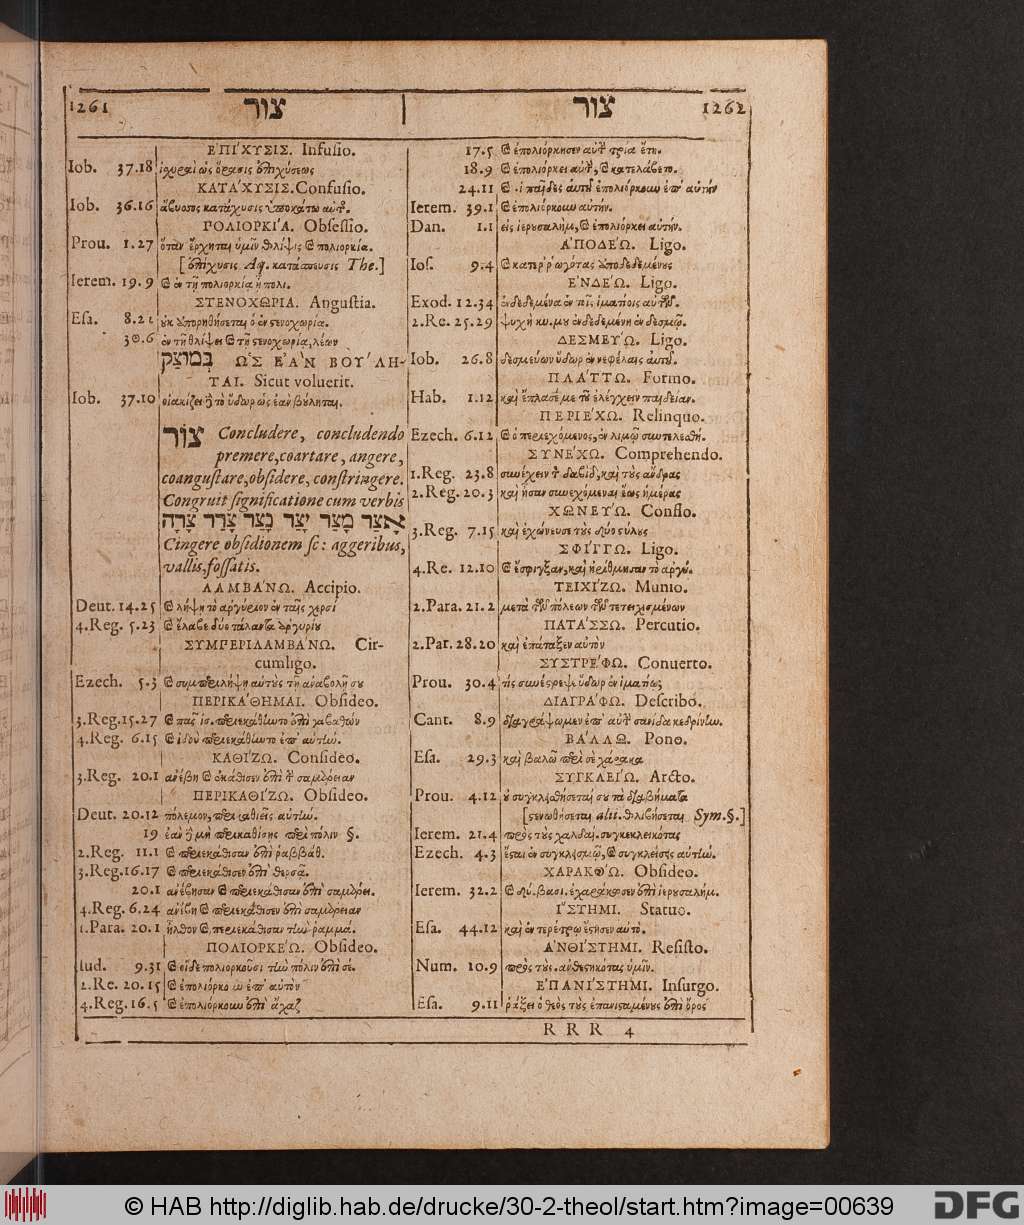 1261 צור
ΕΠΙΧΥΣΙΣ. Infusio.
Iob. 37.18 ἰσχυραὶ ὡς ὅρασις ἐπιχύσεως
ΚΑΤΑΧΥΣΙΣ. Confusio.
Iob. 36.16 ἄβυσσος κατάχυσις ὑποκάτω αὐτῆς.
ΠΟΛΙΟΡΚΙΑ. Obsessio.
Prou. 1.27 ὅταν ἔρχηται ὑμῖν θλίψις καὶ πολιορκία.
[ἐπίχυσις Aq. κατάσπευσις The.]
Ierem. 19.9 καὶ ἐν τῇ πολιορκίᾳ ἣ πολι.
ΣΤΕΝΟΧΩΡΙΑ. Angustia.
Esa. 8.21 οὐκ ἀπορηθήσεται ὁ ἐν στενοχωρίᾳ.
30.6 ἐν τῇ θλίψει καὶ τῇ στενοχωρίᾳ, λέων
במוצק ΩΣ ΕΑΝ ΒΟΥΛΗ-
ΤΑΙ. Sicut voluerit.
Iob. 37.10 οἰακίζει δὲ τὸ ὕδωρ ὡς ἐὰν βούληται.
צור Concludere, concludendo
premere, coartare, angere,
coangustare, obsidere, constringere.
Congruit significatione cum verbis
אצר מצר יצר נצר צרר צרה
Cingere obsidionem sc: aggeribus,
vallis, fossatis.
ΛΑΜΒΑΝΩ. Accipio.
Deut. 14.25 καὶ λήψῃ τὸ ἀργύριον ἐν ταῖς χερσί
4.Reg. 5.23 καὶ ἔλαβε δύο τάλαντα ἀργυρίου
ΣΥΜΠΕΡΙΛΑΜΒΑΝΩ. Cir-
cumligo.
Ezech. 5.3 καὶ συμπεριλήψῃ αὐτοὺς τῇ ἀναβολῇ σου
ΠΕΡΙΚΑΘΗΜΑΙ. Obsideo.
3.Reg. 15.27 καὶ πᾶς ἰσ. περιεκάθητο ἐπὶ γαβαθών
4.Reg. 6.15 καὶ ἰδοὺ περιεκάθητο ἐπ' αὐτὴν.
ΚΑΘΙΖΩ. Consideo.
3.Reg. 20.1 ἀνέβη καὶ ἐκάθισεν ἐπὶ τὴν σαμάρειαν
ΠΕΡΙΚΑΘΙΖΩ. Obsideo.
Deut. 20.12 πόλεμον, περικαθιεῖς αὐτὴν.
19 ἐὰν δὲ μὴ περικαθίσῃς περὶ πόλιν §.
2.Reg. 11.1 καὶ περιεκάθισαν ἐπὶ ῥαββάθ.
3.Reg. 16.17 καὶ περιεκάθισεν ἐπὶ θερσᾶ.
20.1 ἀνέβησαν καὶ περιεκάθισαν ἐπὶ σαμάρει.
4.Reg. 6.24 ἀνέβη καὶ περιεκάθισεν ἐπὶ σαμάρειαν
1.Para. 20.1 ἦλθον καὶ περιεκάθισαν τὴν ῥαμμά.
ΠΟΛΙΟΡΚΕΩ. Obsideo.
Iud. 9.31 καὶ εἶδε πολιορκοῦσι τὴν πόλιν ἐπὶ σέ.
2.Re. 20.15 καὶ ἐπολιόρκουν ἐπ' αὐτὸν
4.Reg. 16.5 καὶ ἐπολιόρκουν ἐπὶ ἄχαζ
צור 1262
17.5 καὶ ἐπολιόρκησεν αὐτὴν τρία ἔτη.
18.9 καὶ ἐπολιόρκει αὐτὴν, καὶ κατελάβετο.
24.11 καὶ οἱ παῖδες αὐτοῦ ἐπολιόρκουν ἐπ' αὐτήν
Ierem. 39.1 καὶ ἐπολιόρκουν αὐτήν.
Dan. 1.1 εἰς ἱερουσαλὴμ, καὶ ἐπολιόρκει αὐτήν.
ΑΠΟΔΕΩ. Ligo.
Ios. 9.4 καὶ κατερρωγότας ἀποδεδεμένους
ΕΝΔΕΩ. Ligo.
Exod. 12.34 ἐνδεδεμένα ἐν τοῖς ἱματίοις αὐτῶν.
2.Re. 25.29 ψυχὴ κυ.μου ἐνδεδεμένη ἐν δεσμῷ.
ΔΕΣΜΕΥΩ. Ligo.
Iob. 26.8 δεσμεύων ὕδωρ ἐν νεφέλαις αὐτοῦ.
ΠΛΑΤΤΩ. Formo.
Hab. 1.12 καὶ ἔπλασέ με τοῦ ἐλέγχειν παιδείαν.
ΠΕΡΙΕΧΩ. Relinquo.
Ezech. 6.12 καὶ ὁ περιεχόμενος, ἐν λιμῷ συντελεσθή.
ΣΥΝΕΧΩ. Comprehendo.
1.Reg. 23.8 συνέχειν τὸν δαβίδ, καὶ τοὺς ἄνδρας
2.Reg. 20.3 καὶ ἦσαν συνεχόμεναι ἕως ἡμέρας
ΧΩΝΕΥΩ. Conflo.
3.Reg. 7.15 καὶ ἐχώνευσε τοὺς δύο στύλους
ΣΦΙΓΓΩ. Ligo.
4.Re. 12.10 καὶ ἔσφιγξαν, καὶ ἠρίθμησαν τὸ ἀργύ.
ΤΕΙΧΙΖΩ. Munio.
2.Para. 21.2 μετὰ τῶν πόλεων τῶν τετειχισμένων
ΠΑΤΑΣΣΩ. Percutio.
2.Par. 28.20 καὶ ἐπάταξεν αὐτὸν
ΣΥΣΤΡΕΦΩ. Conuerto.
Prou. 30.4 τίς συνέστρεψε ὕδωρ ἐν ἱματίῳ;
ΔΙΑΓΡΑΦΩ. Describo.
Cant. 8.9 διαγράψωμεν ἐπ' αὐτὴν σανίδα κεδρίνην.
ΒΑΛΛΩ. Pono.
Esa. 29.3 καὶ βαλῶ περὶ σὲ χάρακα
ΣΥΓΚΛΕΙΩ. Arcto.
Prou. 4.12 οὐ συγκλεισθήσεταί σου τὰ διαβήματα
[στενωθήσεται alii. θλιβήσεται Sym.§.]
Ierem. 21.4 πρὸς τοὺς χαλδαί. συγκεκλεικότας
Ezech. 4.3 ἔσται ἐν συγκλεισμῷ, καὶ συγκλείσεις αὐτὴν.
ΧΑΡΑΚΟΩ. Obsideo.
Ierem. 32.2 καὶ δύ. βασι. ἐχαράκωσεν ἐπὶ ἱερουσαλήμ.
ΙΣΤΗΜΙ. Statuo.
Esa. 44.12 καὶ ἐν τερέτρῳ ἔστησεν αὐτὸ.
ΑΝΘΙΣΤΗΜΙ. Resisto.
Num. 10.9 πρὸς τοὺς . ἀνθεστηκότας ὑμῖν.
ΕΠΑΝΙΣΤΗΜΙ. Insurgo.
Esa. 9.11 ῥάξει ὁ θεὸς τοὺς ἐπανισταμένους ἐπὶ ὄρος
RRR 4
© HAB http://diglib.hab.de/drucke/30-2-theol/start.htm?image=00639 DFG